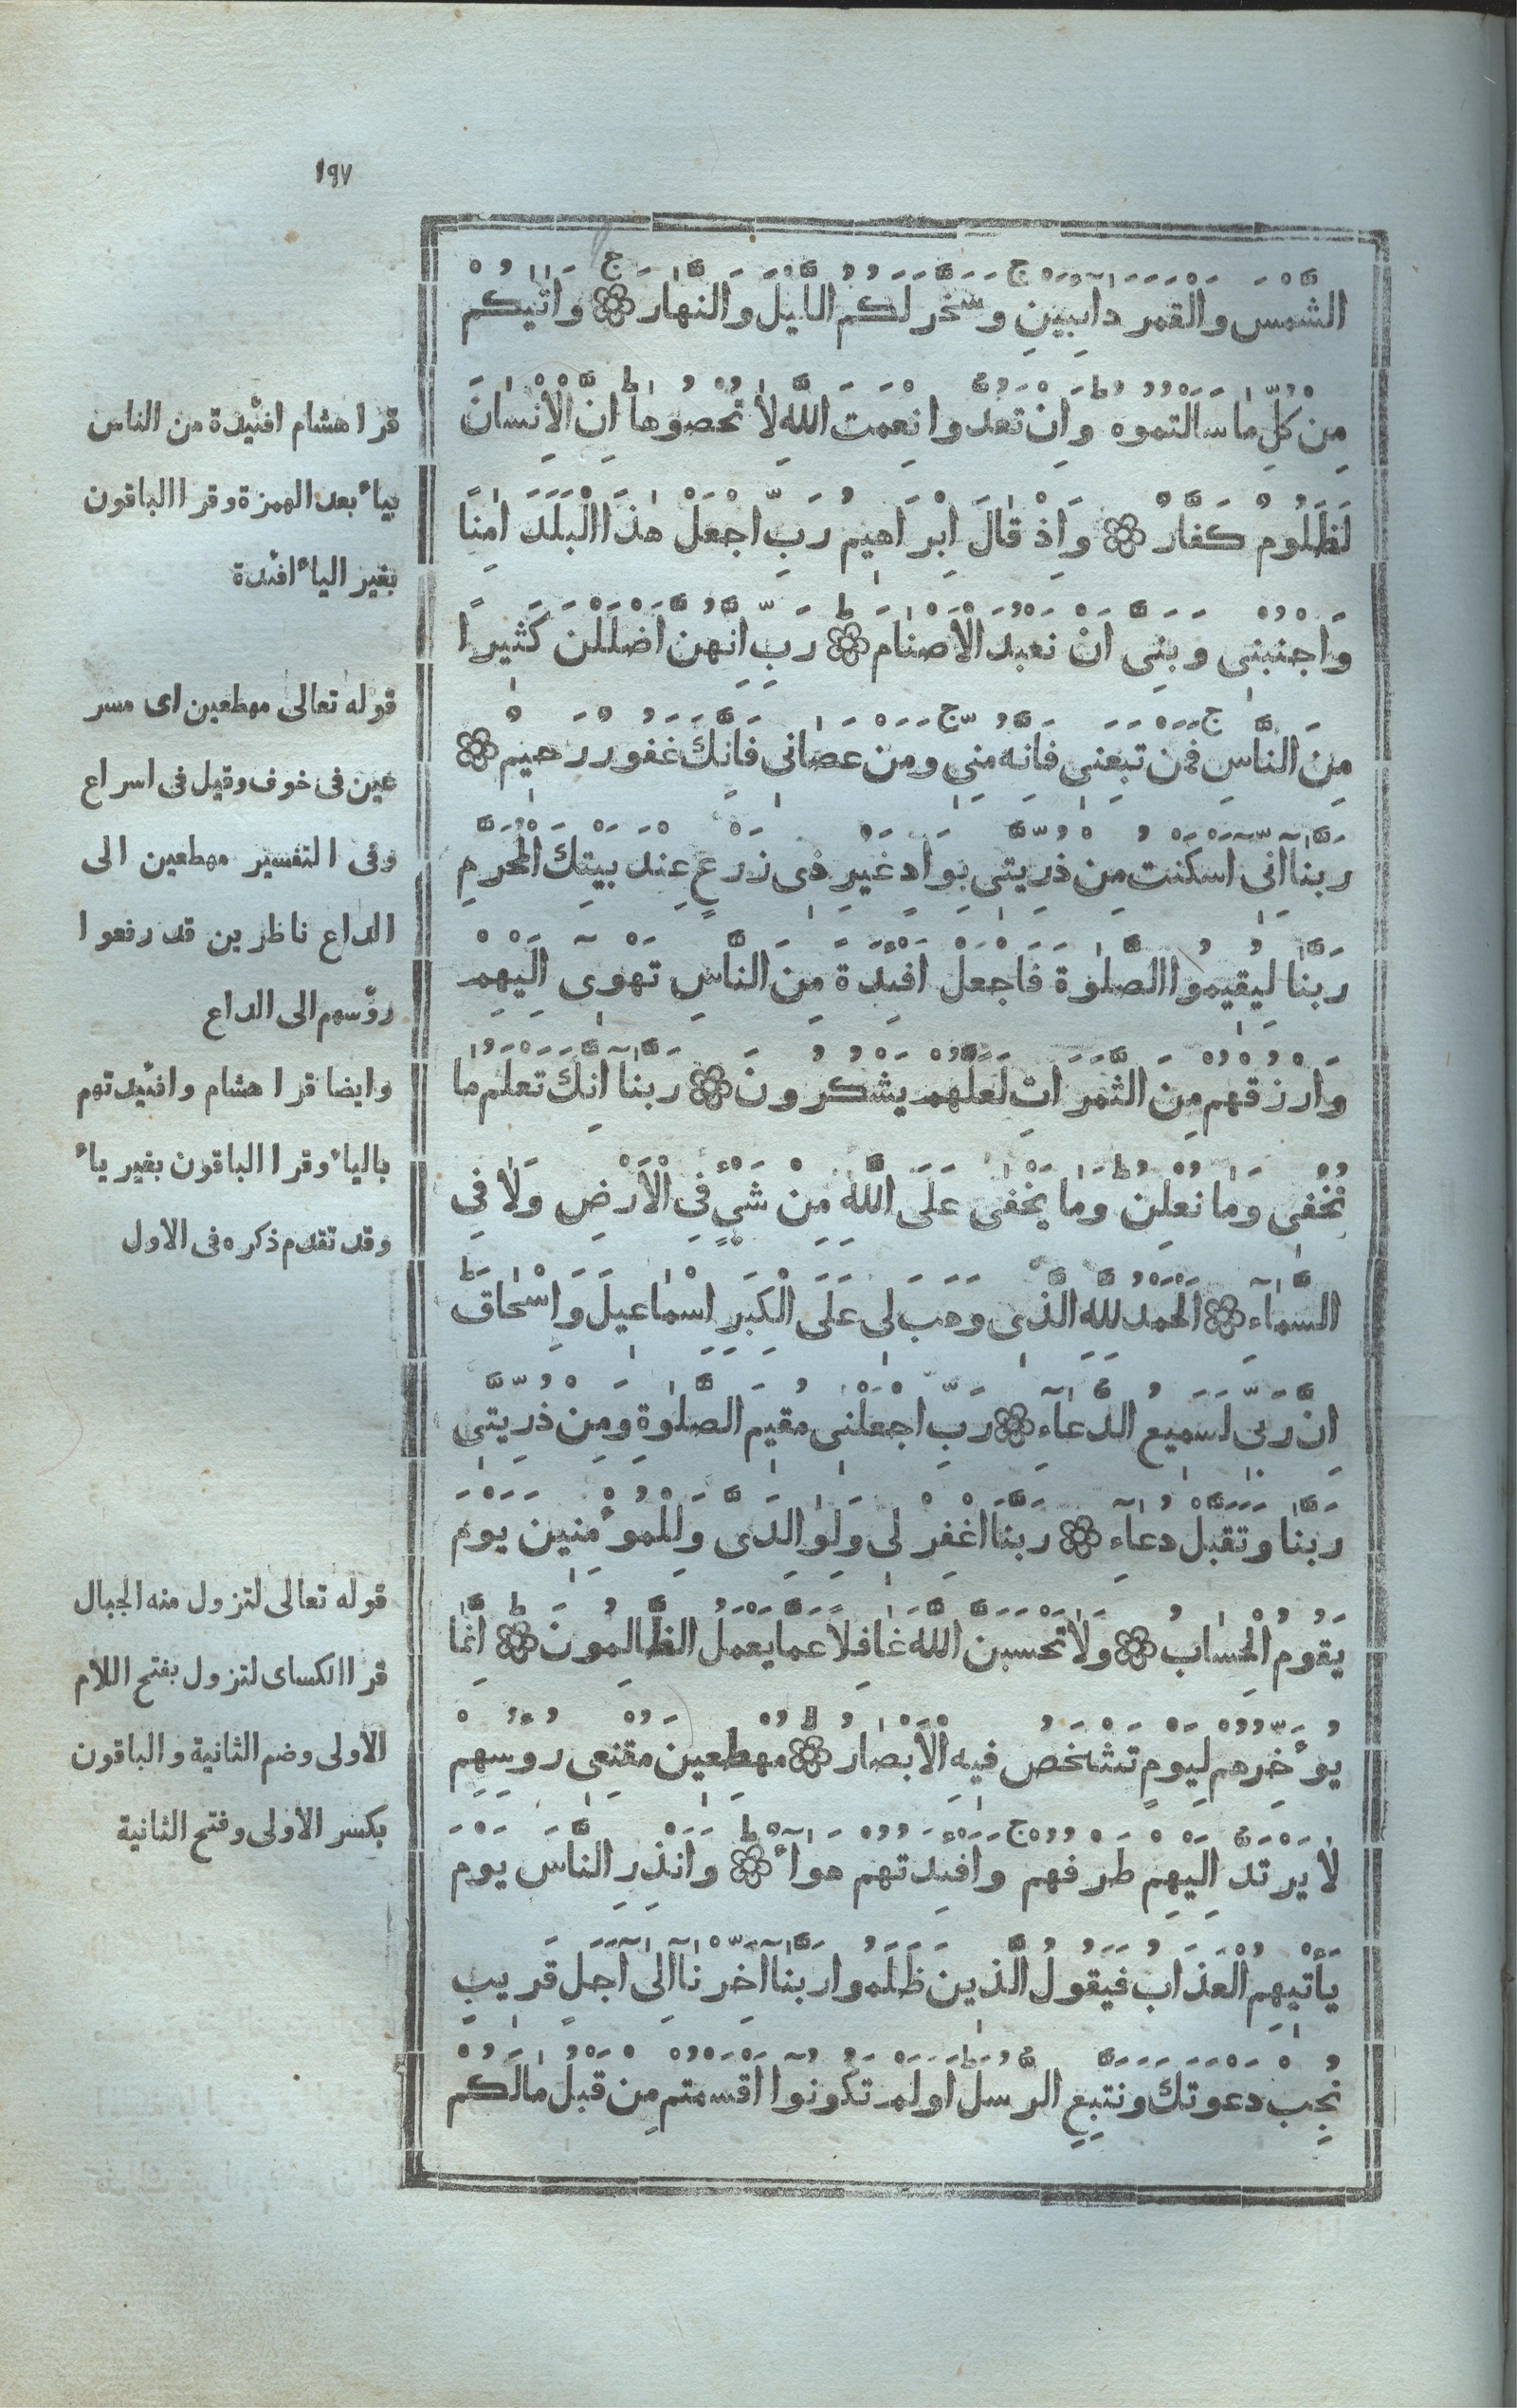 ١٩٧
الشَّمْسَ وَالْقَمَرَ دَآئِبَيْنِ ج وَسَخَّرَ لَكُمُ اللَّيْلَ وَالنَّهَارَ ج ۞ وَاٰتٰيكُمْ
مِنْ كُلِّ مَا سَاَلْتُمُوهُ ط وَاِنْ تَعُدُّوا نِعْمَتَ اللَّهِ لَا تُحْصُوهَا ط اِنَّ الْاِنْسَانَ
لَظَلُومٌ كَفَّارٌ ۞ وَاِذْ قَالَ اِبْرَاهِيمُ رَبِّ اجْعَلْ هٰذَا الْبَلَدَ اٰمِنًا
وَاجْنُبْنِى وَبَنِىَّ اَنْ نَعْبُدَ الْاَصْنَامَ ط ۞ رَبِّ اِنَّهُنَّ اَضْلَلْنَ كَثِيرًا
مِنَ النَّاسِ ج فَمَنْ تَبِعَنِى فَاِنَّهُ مِنِّى ج وَمَنْ عَصَانِى فَاِنَّكَ غَفُورٌ رَحِيمٌ ۞
رَبَّنَآ اِنِّىٓ اَسْكَنْتُ مِنْ ذُرِّيَّتِى بِوَادٍ غَيْرِ ذِى زَرْعٍ عِنْدَ بَيْتِكَ الْمُحَرَّمِ
رَبَّنَا لِيُقِيمُوا الصَّلٰوةَ فَاجْعَلْ اَفْئِدَةً مِنَ النَّاسِ تَهْوِىٓ اِلَيْهِمْ
وَارْزُقْهُمْ مِنَ الثَّمَرَاتِ لَعَلَّهُمْ يَشْكُرُونَ ۞ رَبَّنَآ اِنَّكَ تَعْلَمُ مَا
نُخْفِى وَمَا نُعْلِنُ ط وَمَا يَخْفٰى عَلَى اللَّهِ مِنْ شَىْءٍ فِى الْاَرْضِ وَلَا فِى
السَّمَآءِ ۞ اَلْحَمْدُ لِلَّهِ الَّذِى وَهَبَ لِى عَلَى الْكِبَرِ اِسْمَاعِيلَ وَاِسْحَاقَ ط
اِنَّ رَبِّى لَسَمِيعُ الدُّعَآءِ ۞ رَبِّ اجْعَلْنِى مُقِيمَ الصَّلٰوةِ وَمِنْ ذُرِّيَّتِى
رَبَّنَا وَتَقَبَّلْ دُعَآءِ ۞ رَبَّنَا اغْفِرْ لِى وَلِوَالِدَىَّ وَلِلْمُؤْمِنِينَ يَوْمَ
يَقُومُ الْحِسَابُ ۞ وَلَا تَحْسَبَنَّ اللَّهَ غَافِلًا عَمَّا يَعْمَلُ الظَّالِمُونَ ط ۞ اِنَّمَا
يُؤَخِّرُهُمْ لِيَوْمٍ تَشْخَصُ فِيهِ الْاَبْصَارُ لا ۞ مُهْطِعِينَ مُقْنِعِى رُؤُسِهِمْ
لَا يَرْتَدُّ اِلَيْهِمْ طَرْفُهُمْ ج وَاَفْئِدَتُهُمْ هَوَآءٌ ط ۞ وَاَنْذِرِ النَّاسَ يَوْمَ
يَأْتِيهِمُ الْعَذَابُ فَيَقُولُ الَّذِينَ ظَلَمُوا رَبَّنَآ اَخِّرْنَآ اِلٰىٓ اَجَلٍ قَرِيبٍ
نُجِبْ دَعْوَتَكَ وَنَتَّبِعِ الرُّسُلَ ط اَوَلَمْ تَكُونُوٓا اَقْسَمْتُمْ مِنْ قَبْلُ مَا لَكُمْ
قرا هشام افئيدة من الناس
بياء بعد الهمزة وقرا الباقون
بغير الياء افئدة
قوله تعالى مهطعين اى مسر
عين فى خوف وقيل فى اسراع
وفى التفسير مهطعين الى
الداع ناظرين قد رفعوا
رؤسهم الى الداع
وايضا قرا هشام وافئيدتهم
بالياء وقرا الباقون بغير ياء
وقد تقدم ذكره فى الاول
قوله تعالى لتزول منه الجبال
قرا الكساى لتزول بفتح اللام
الاولى وضم الثانية والباقون
بكسر الاولى وفتح الثانية